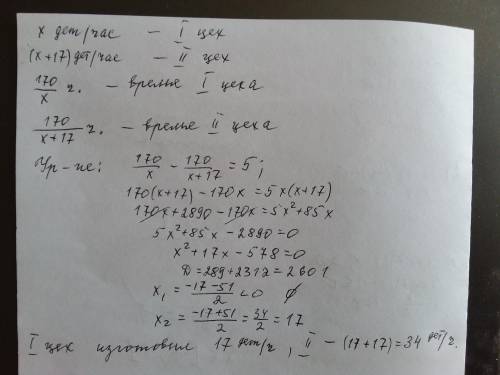 x дет/час — I цех
(x+17) дет/час — II цех
170/x ч. — время I цеха
170/(x+17) ч. — время II цеха
Ур-ие: 170/x - 170/(x+17) = 5;
170(x+17) - 170x = 5x(x+17)
170x + 2890 - 170x = 5x² + 85x
5x² + 85x - 2890 = 0
x² + 17x - 578 = 0
D = 289 + 2312 = 2601
x₁ = (-17-51)/2 < 0 ∅
x₂ = (-17+51)/2 = 34/2 = 17
I цех изготовил 17 дет/ч, II – (17+17) = 34 дет/ч.